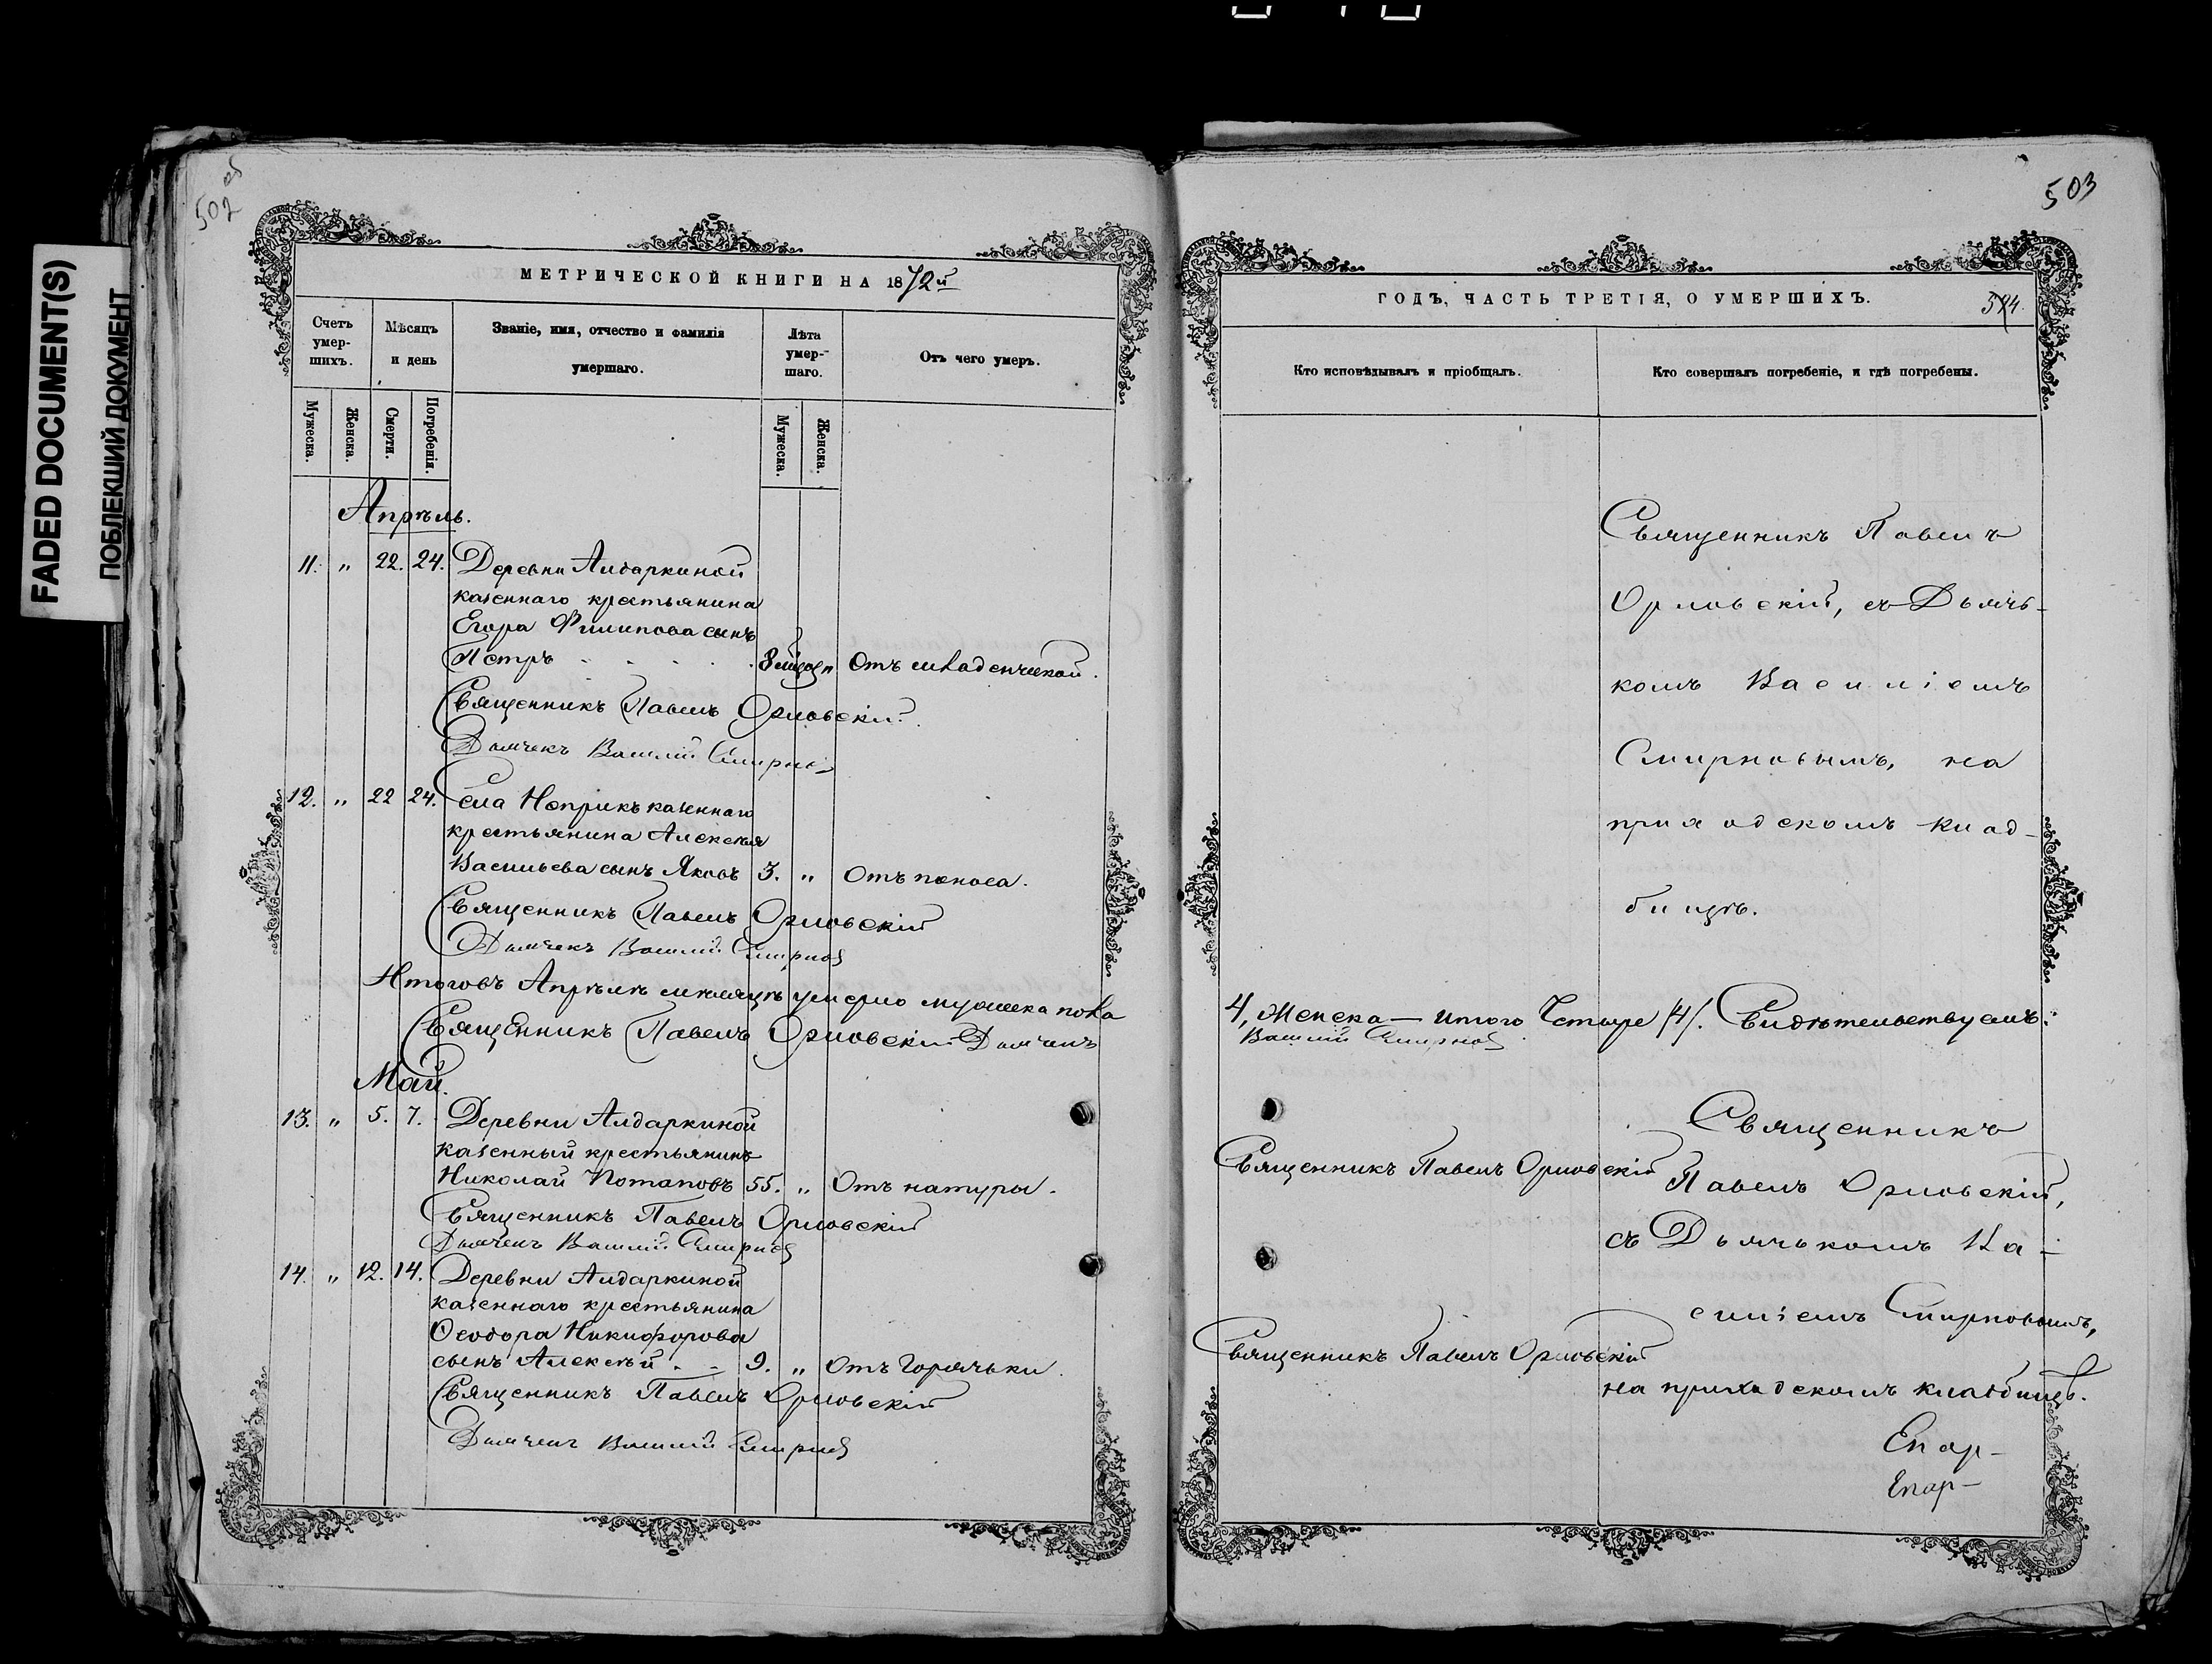 FADED DOCUMENT(S)
ПОБЛЕКШИЙ ДОКУМЕНТ
502 об
МЕТРИЧЕСКОЙ КНИГИ НА 1872й
Счетъ умер-шихъ.
Мѣсяцъ и день
Званіе, имя, отчество и фамилія умершаго.
Лѣта умер-шаго.
Отъ чего умеръ.
Мужеска.
Женска.
Смерти.
Погребенія.
Мужеска.
Женска.
Апрѣль.
11. " 22. 24. Деревни Алдаркиной
казеннаго крестьянина
Егора Филипова сынъ
Петръ . . . . . 8 " Отъ младенческой.
Священникъ Павелъ Орловскій.
Дьячекъ Василій Смирновъ
12. " 22 24. села Неприкъ казеннаго
крестьянина Алексѣя
Васильева сынъ Яковъ 3. " Отъ поноса.
Священникъ Павелъ Орловскій
Дьячекъ Василій Смирновъ
Итогов Апрѣлѣ мѣсяцѣ умерло мужеска пола
Священникъ Павелъ Орловскій Дьячекъ
Май.
13. " 5. 7. Деревни Алдаркиной
казенный крестьянинъ
Николай Потаповъ 55. " Отъ натуры.
Священникъ Павелъ Орловскій
Дьячекъ Василій Смирновъ
14. " 12. 14. Деревни Алдаркиной
казеннаго крестьянина
Ѳеодора Никифорова
сынъ Алексѣй . - 9. " Отъ горячьки.
Священникъ Павелъ Орловскій
Дьячекъ Василій Смирновъ
503
ГОДЪ, ЧАСТЬ ТРЕТІЯ, О УМЕРШИХЪ.
Кто исповѣдывалъ и пріобщалъ.
Кто совершалъ погребеніе, и гдѣ погребены.
Священникъ Павелъ
Орловскій, съ Дьячь-
комъ Василіемъ
Смирновымъ, на
приходскомъ клад-
бищѣ.
4, Женска — итого Четыре /4/. Свидѣтельствуемъ:
Василій Смирновъ
Священникъ Павелъ Орловскій
Священникъ
Павелъ Орловскій,
съ Дьячькомъ Ва-
силіемъ Смирновымъ,
Священникъ Павелъ Орловскій
на приходскомъ кладбищѣ.
Епар-
Епар-